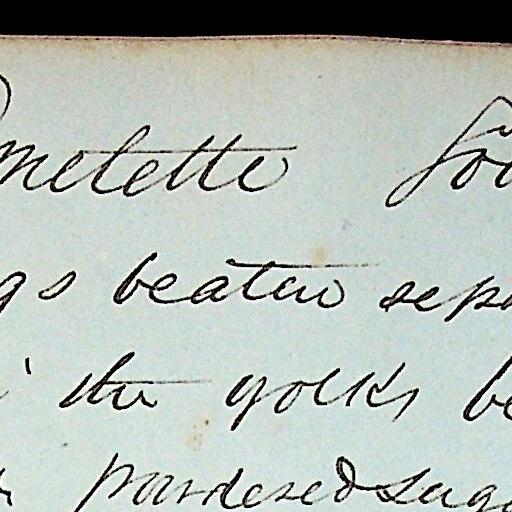 melette Sou
gs beaten sepa
the yolks be
powderedsuga